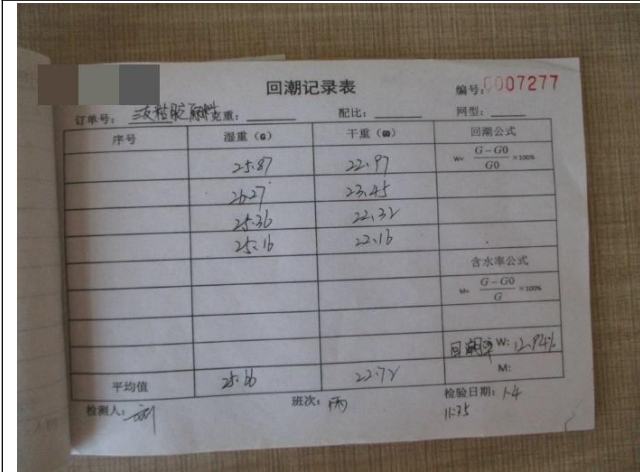 回潮记录表
编号:0007277
订单号: 三友粘胶原料 克重: 配比: 网型:
序号 湿重(G) 干重(G0) 回潮公式
25.87 22.97 W= G-G0/G0 ×100%
26.27 23.45
25.36 22.32
25.16 22.16
含水率公式
M= G-G0/G ×100%
回潮率 W: 12.94%
M:
平均值 25.66 22.72
检测人: 班次: 丙 检验日期: 1.4
11:35